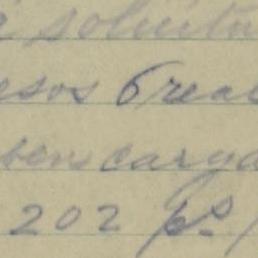 solicita
esos 6 real
ben carga
202 ps.